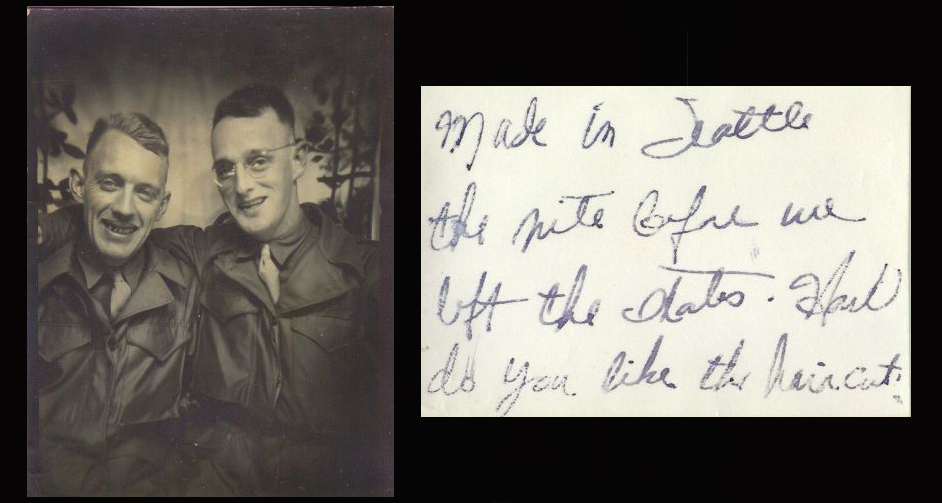 Made in Seattle
the nite before we
left the states. How
do you like the haircut.